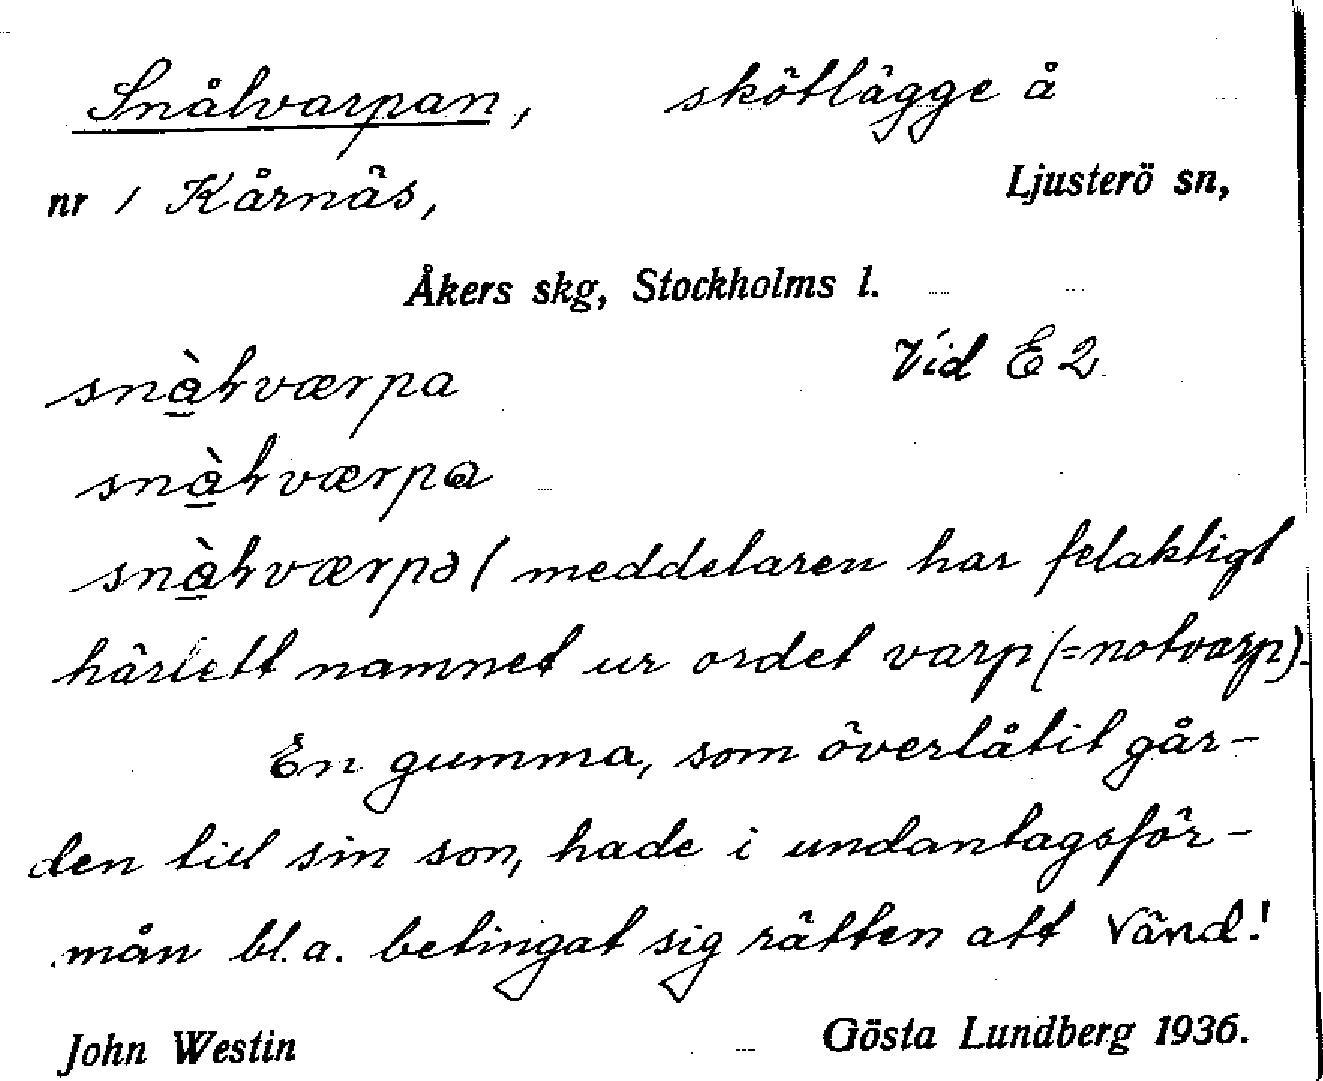 Snålvarpan, skötlägge å
nr 1 Kårnäs, Ljusterö sn,
Åkers skg, Stockholms l.
Vid E2
snàɫværpa
snàɫværpɑ
snàɫværpə (meddelaren har felaktigt
härlett namnet ur ordet varp (=notvarp).
En gumma, som överlåtit går-
den till sin son, hade i undantagsför-
mån bl.a. betingat sig rätten att Vänd!
John Westin Gösta Lundberg 1936.